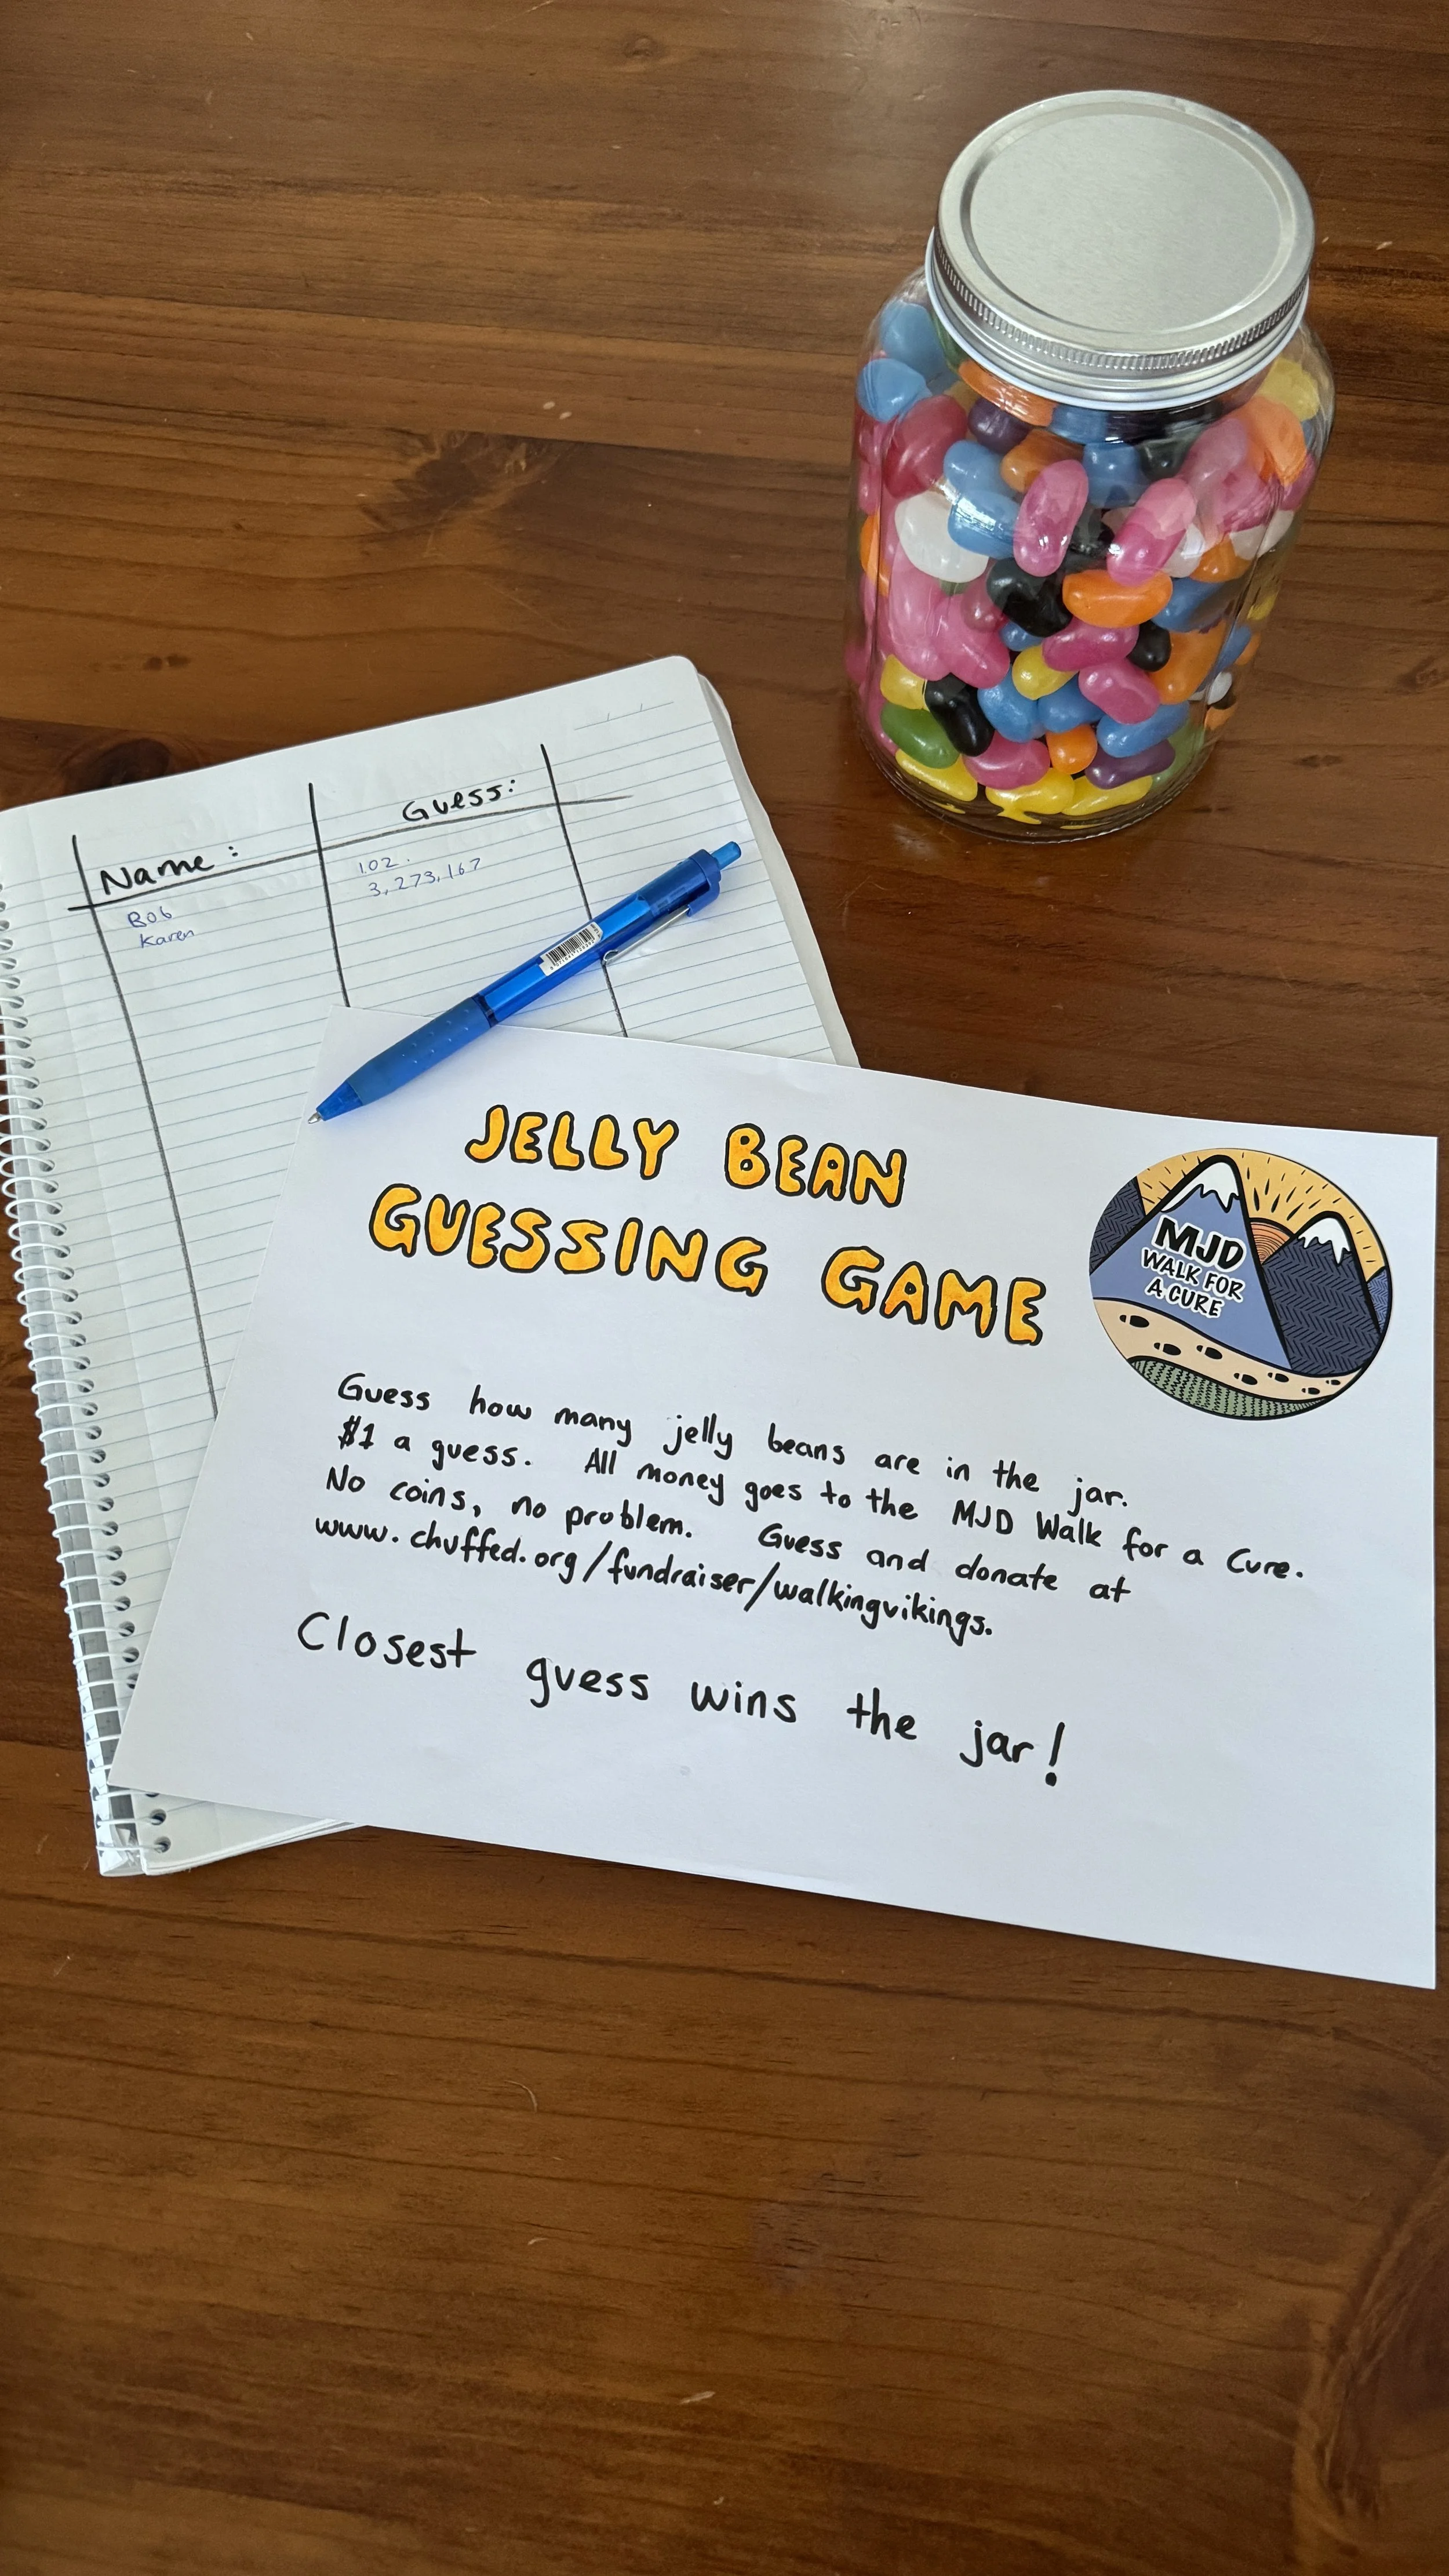 Name: Guess:
Bob 102.
Karen 3,273,167
JELLY BEAN
GUESSING GAME
MJD
WALK FOR
A CURE
Guess how many jelly beans are in the jar.
$1 a guess. All money goes to the MJD Walk for a Cure.
No coins, no problem. Guess and donate at
www.chuffed.org/fundraiser/walkingvikings.
Closest guess wins the jar!